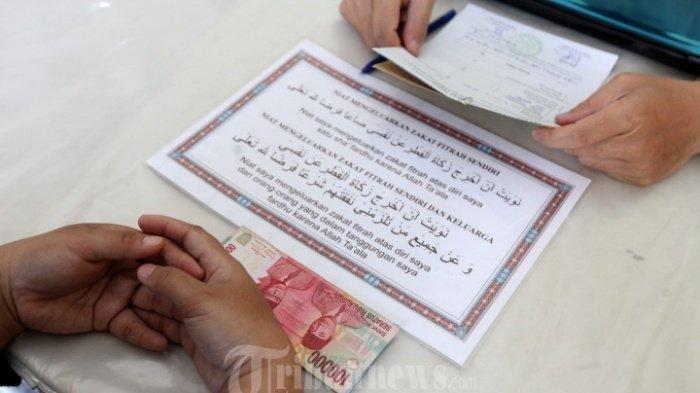 NIAT MENGELUARKAN ZAKAT FITRAH SENDIRI
نَوَيْتُ اَنْ اُخْرِجَ زَكَاةَ الْفِطْرِ عَنْ نَفْسِيْ صَاعًا فَرْضًا لله تَعَلَى
Niat saya mengeluarkan zakat fitrah atas diri saya
satu sha' fardhu karena Allah Ta'ala
NIAT MENGELUARKAN ZAKAT FITRAH SENDIRI DAN KELUARGA
نَوَيْتُ اَنْ اُخْرِجَ زَكَاةَ الْفِطْرِ عَنْ نَفْسِيْ
وَ عَنْ جَمِيْعِ مَنْ تَلْزَمُنِيْ نَفَقَتُهُمْ شَرْعًا فَرْضًا لله تَعَلَى
Niat saya mengeluarkan zakat fitrah atas diri saya
dan orang-orang yang dalam tanggungan saya
fardhu karena Allah Ta'ala
100000
SERATUS RIBU RUPIAH
BANK INDONESIA
Tribunnews.com